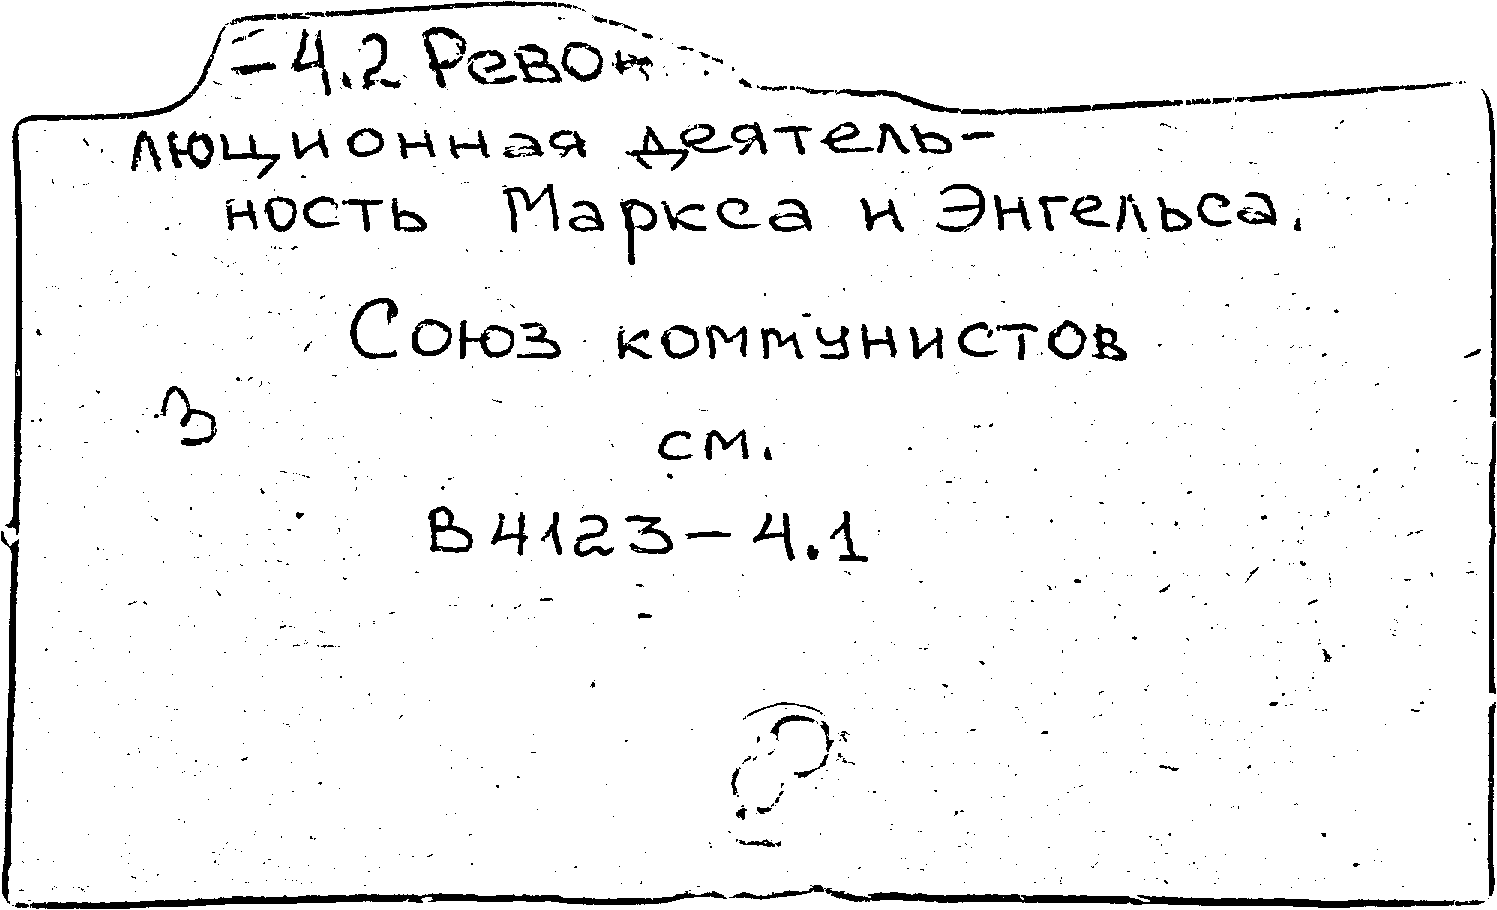 -4.2 Рево-
люционная деятель-
ность Маркса и Энгельса.
Союз коммунистов
3
см.
В4123-4.1